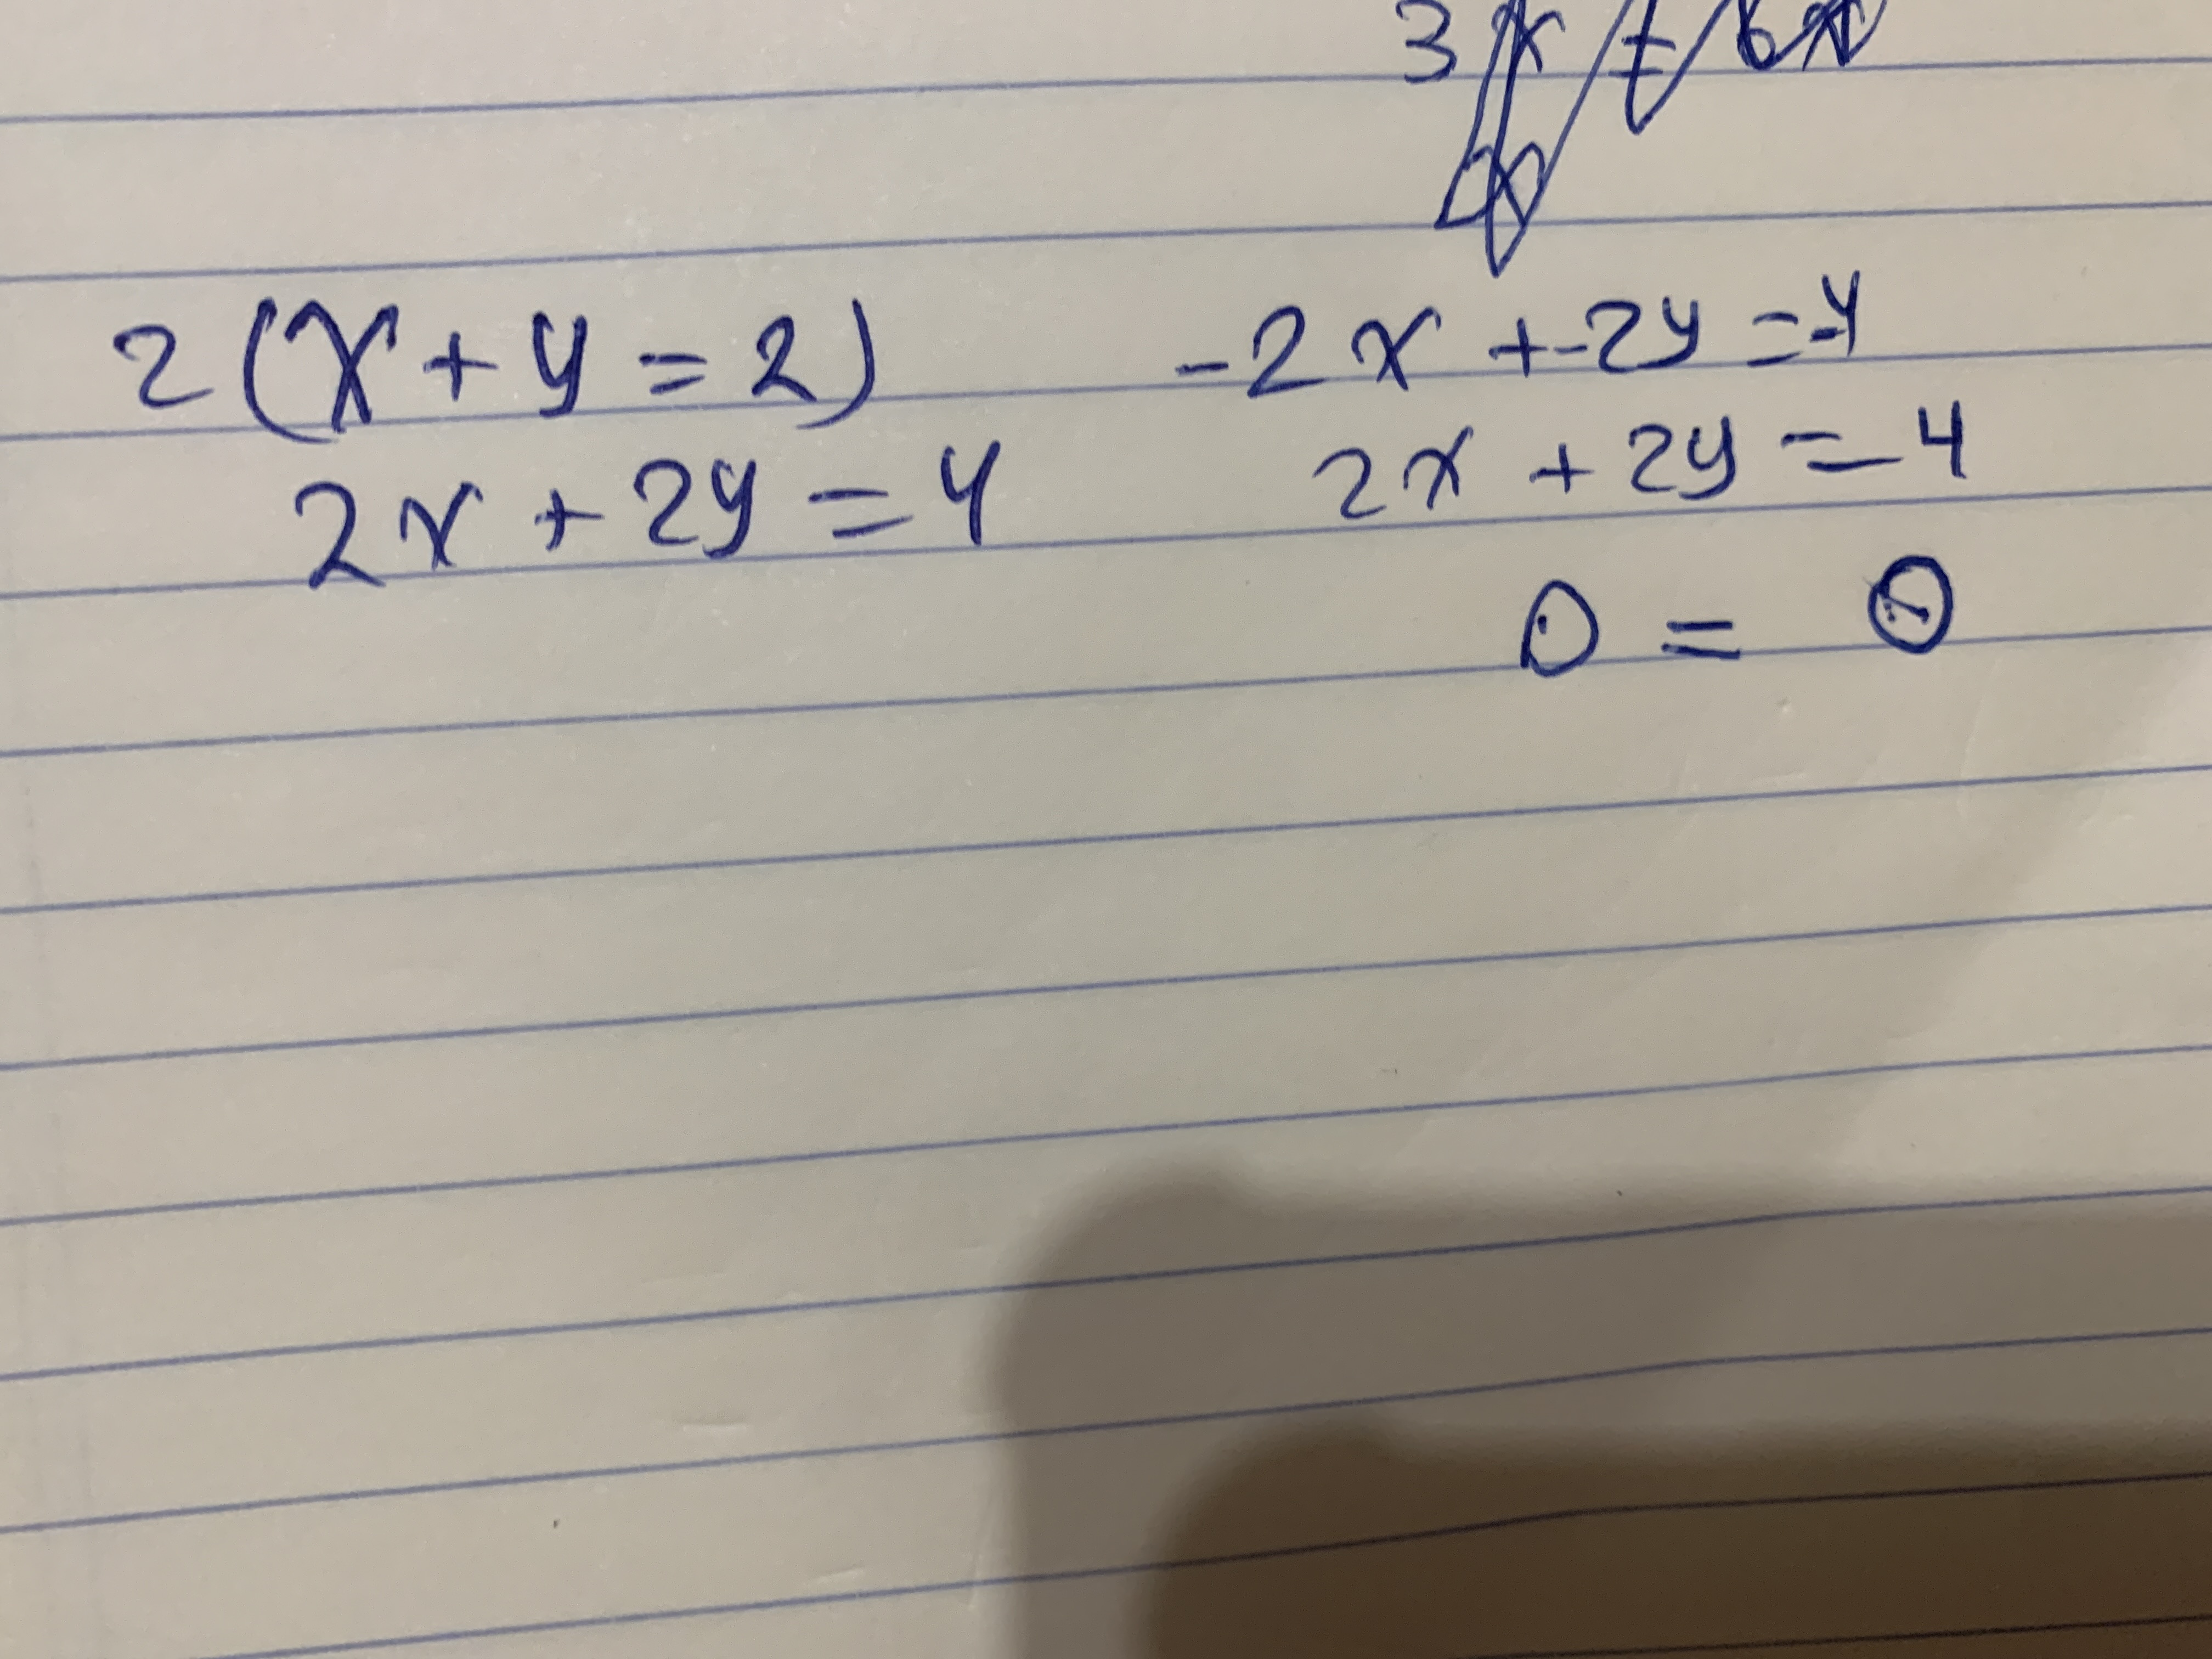 2(x+y=2)
2x+2y=4
-2x+-2y=-4
2x+2y=4
0=0